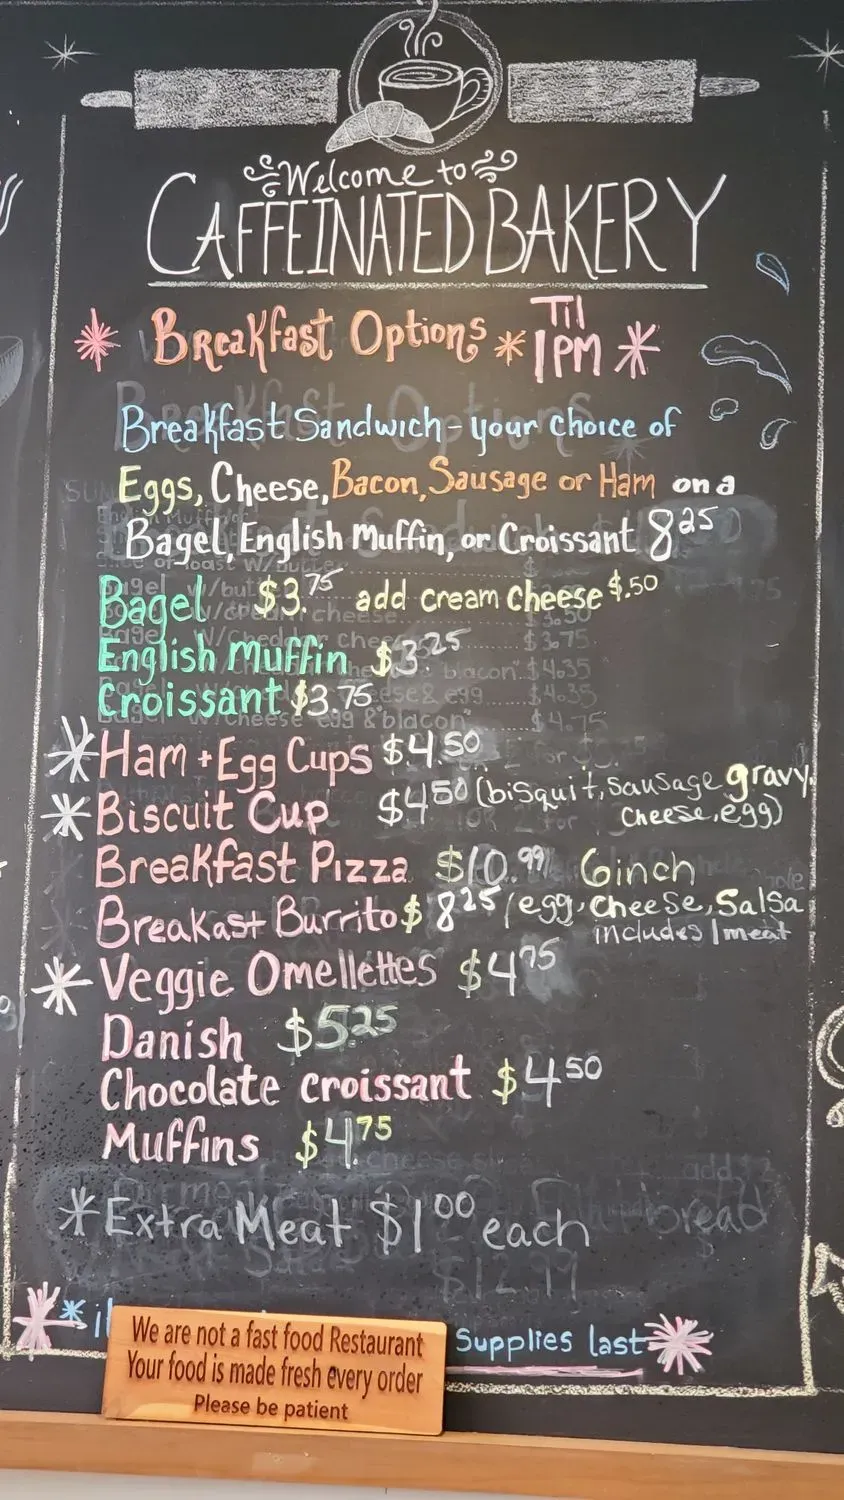 Welcome to
CAFFEINATED BAKERY
Breakfast Options Til 1PM
Breakfast Sandwich - your choice of
Eggs, Cheese, Bacon, Sausage or Ham on a
Bagel, English Muffin, or Croissant 8.25
Bagel $3.75 add cream cheese $.50
English Muffin $3.25
Croissant $3.75
*Ham + Egg Cups $4.50
*Biscuit Cup $4.50 (bisquit, sausage gravy,
cheese, egg)
Breakfast Pizza $10.99 6inch
Breakast Burrito $8.25 (egg, cheese, Salsa
includes 1 meat
*Veggie Omellettes $4.75
Danish $5.25
Chocolate croissant $4.50
Muffins $4.75
*Extra Meat $1.00 each
Supplies last
We are not a fast food Restaurant
Your food is made fresh every order
Please be patient